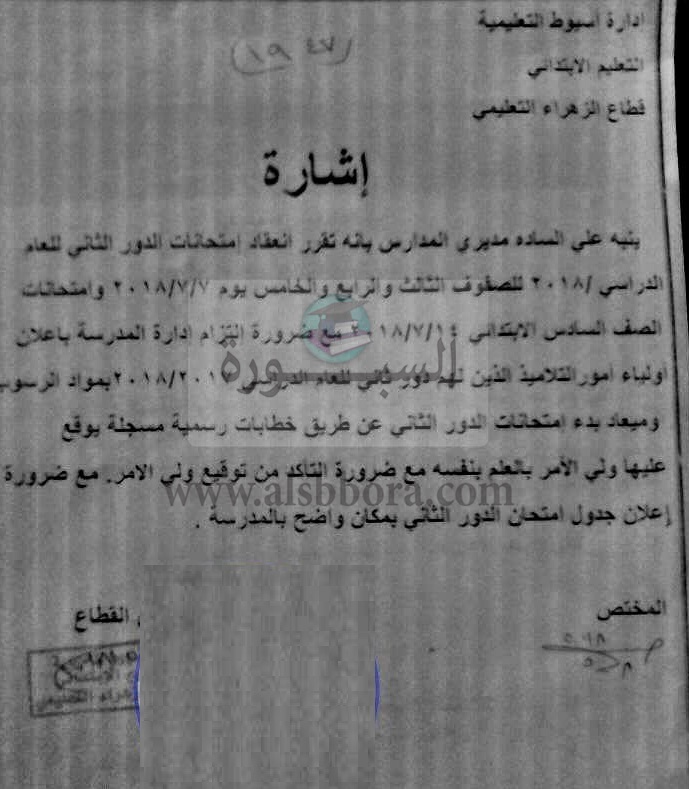 ادارة أسيوط التعليمية
التعليم الابتدائي
قطاع الزهراء التعليمي
(١٩٤٧)
إشارة
ينبه على الساده مديري المدارس بانه تقرر انعقاد إمتحانات الدور الثاني للعام
الدراسي /٢٠١٨ للصفوف الثالث والرابع والخامس يوم ٢٠١٨/٧/٧ وامتحانات
الصف السادس الابتدائي ٢٠١٨/٧/١٤ مع ضرورة التزام ادارة المدرسة باعلان
أولياء أمورالتلاميذ الذين لهم دور ثاني للعام الدراسي ٢٠١٨/٢٠١٧بمواد الرسوب
وميعاد بدء امتحانات الدور الثاني عن طريق خطابات رسمية مسجلة يوقع
عليها ولي الأمر بالعلم بنفسه مع ضرورة التأكد من توقيع ولي الامر. مع ضرورة
إعلان جدول امتحان الدور الثاني بمكان واضح بالمدرسة .
السبورة
www.alsbbora.com
المختص
القطاع